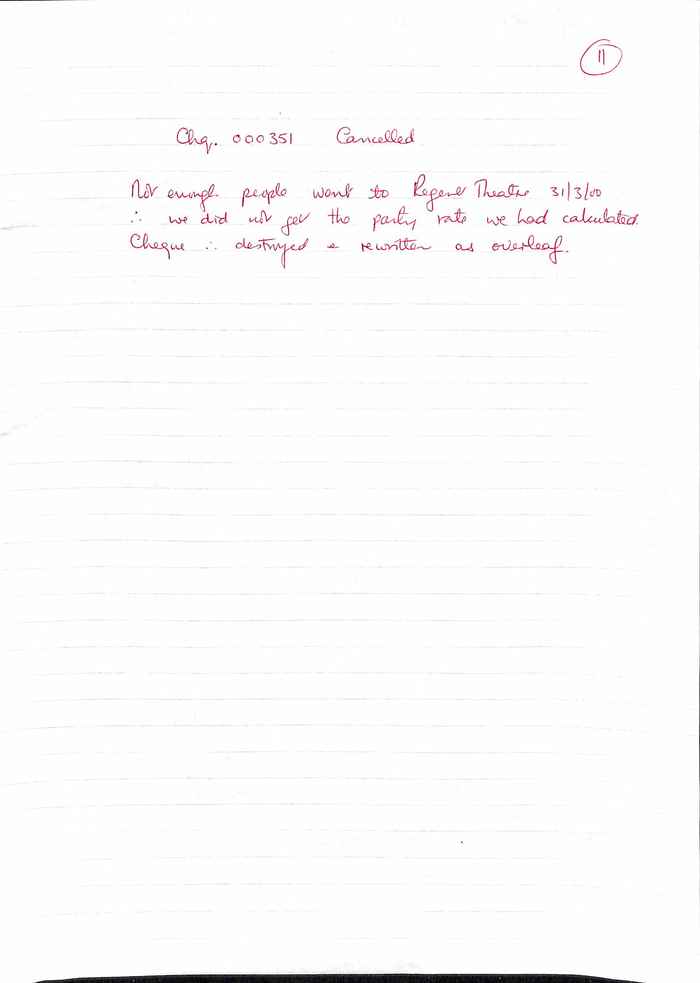 11
Chq. 000351 Cancelled
Not enough people went to Regent Theatre 31/3/00
∴ we did not get the party rate we had calculated.
Cheque ∴ destroyed & rewritten as overleaf.